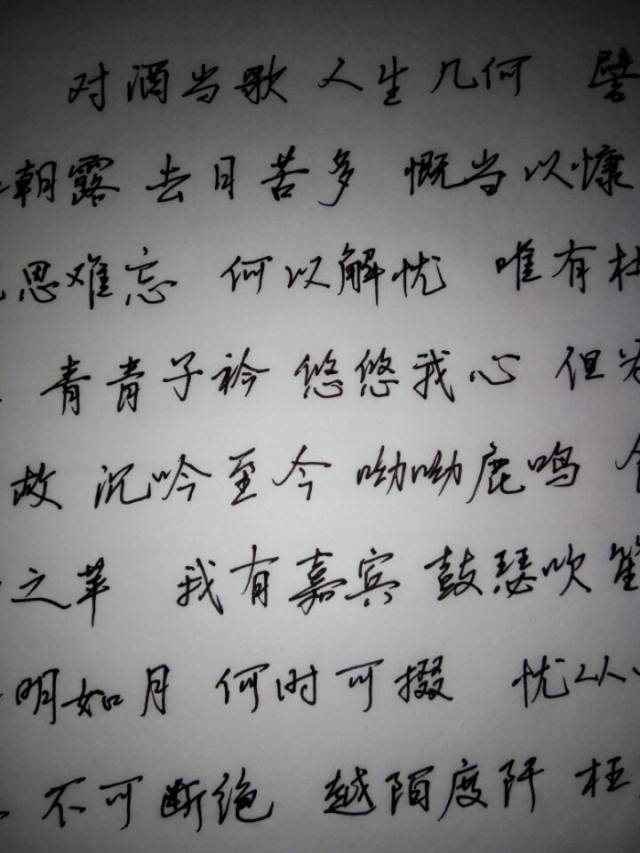 对酒当歌 人生几何 譬
朝露 去日苦多 慨当以慷
思难忘 何以解忧 唯有杜
青青子衿 悠悠我心 但为
故 沉吟至今 呦呦鹿鸣 食
之苹 我有嘉宾 鼓瑟吹笙
明如月 何时可掇 忧从
不可断绝 越陌度阡 枉